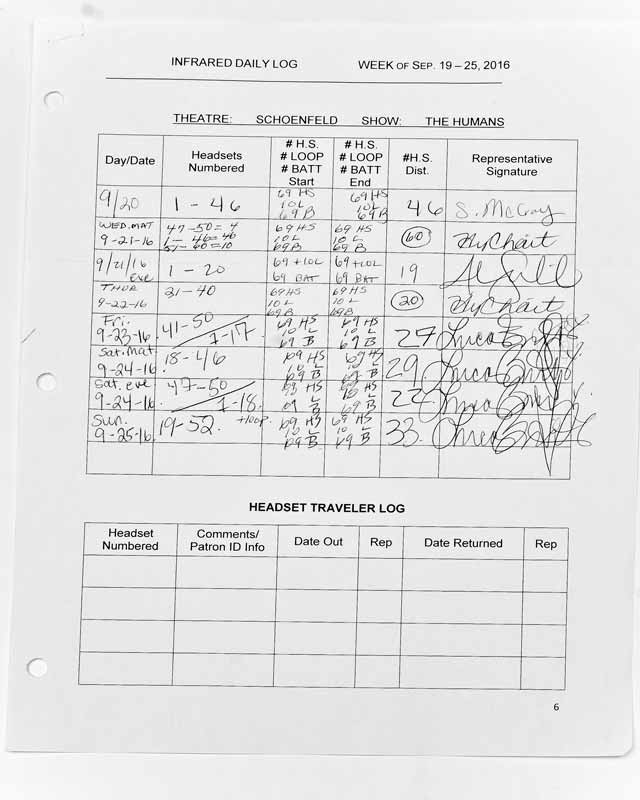 INFRARED DAILY LOG WEEK OF SEP. 19 – 25, 2016
THEATRE: SCHOENFELD SHOW: THE HUMANS
Day/Date Headsets Numbered # H.S. # LOOP # BATT Start # H.S. # LOOP # BATT End #H.S. Dist. Representative Signature
9/20 1 - 46 69 HS 10 L 69 B 69 HS 10 L 69 B 46 S. McCray
WED. MAT 9-21-16 47-50= 4 1 - 46= 46 51-60=10 69 HS 10 L 69 B 69 HS 10 L 69 B 60
9/21/16 Eve 1 - 20 69 +10L 69 BAT 69 +10L 69 BAT 19
THUR 9-22-16 21-40 69 HS 10 L 69 B 69 HS 10 L 69 B 20
Fri. 9-23-16 41-50 / 1-17 69 HS 10 L 69 B 69 HS 10 L 69 B 27
Sat. mat 9-24-16 18-46 69 HS 10 L 69 B 69 HS 10 L 69 B 29
Sat. eve 9-24-16 47-50 / 1-18 69 HS 10 L 69 B 69 HS 10 L 69 B 22
Sun. 9-25-16 19-52. +loop 69 HS 10 L 69 B 69 HS 10 L 69 B 33.
HEADSET TRAVELER LOG
Headset Numbered Comments/ Patron ID Info Date Out Rep Date Returned Rep
6